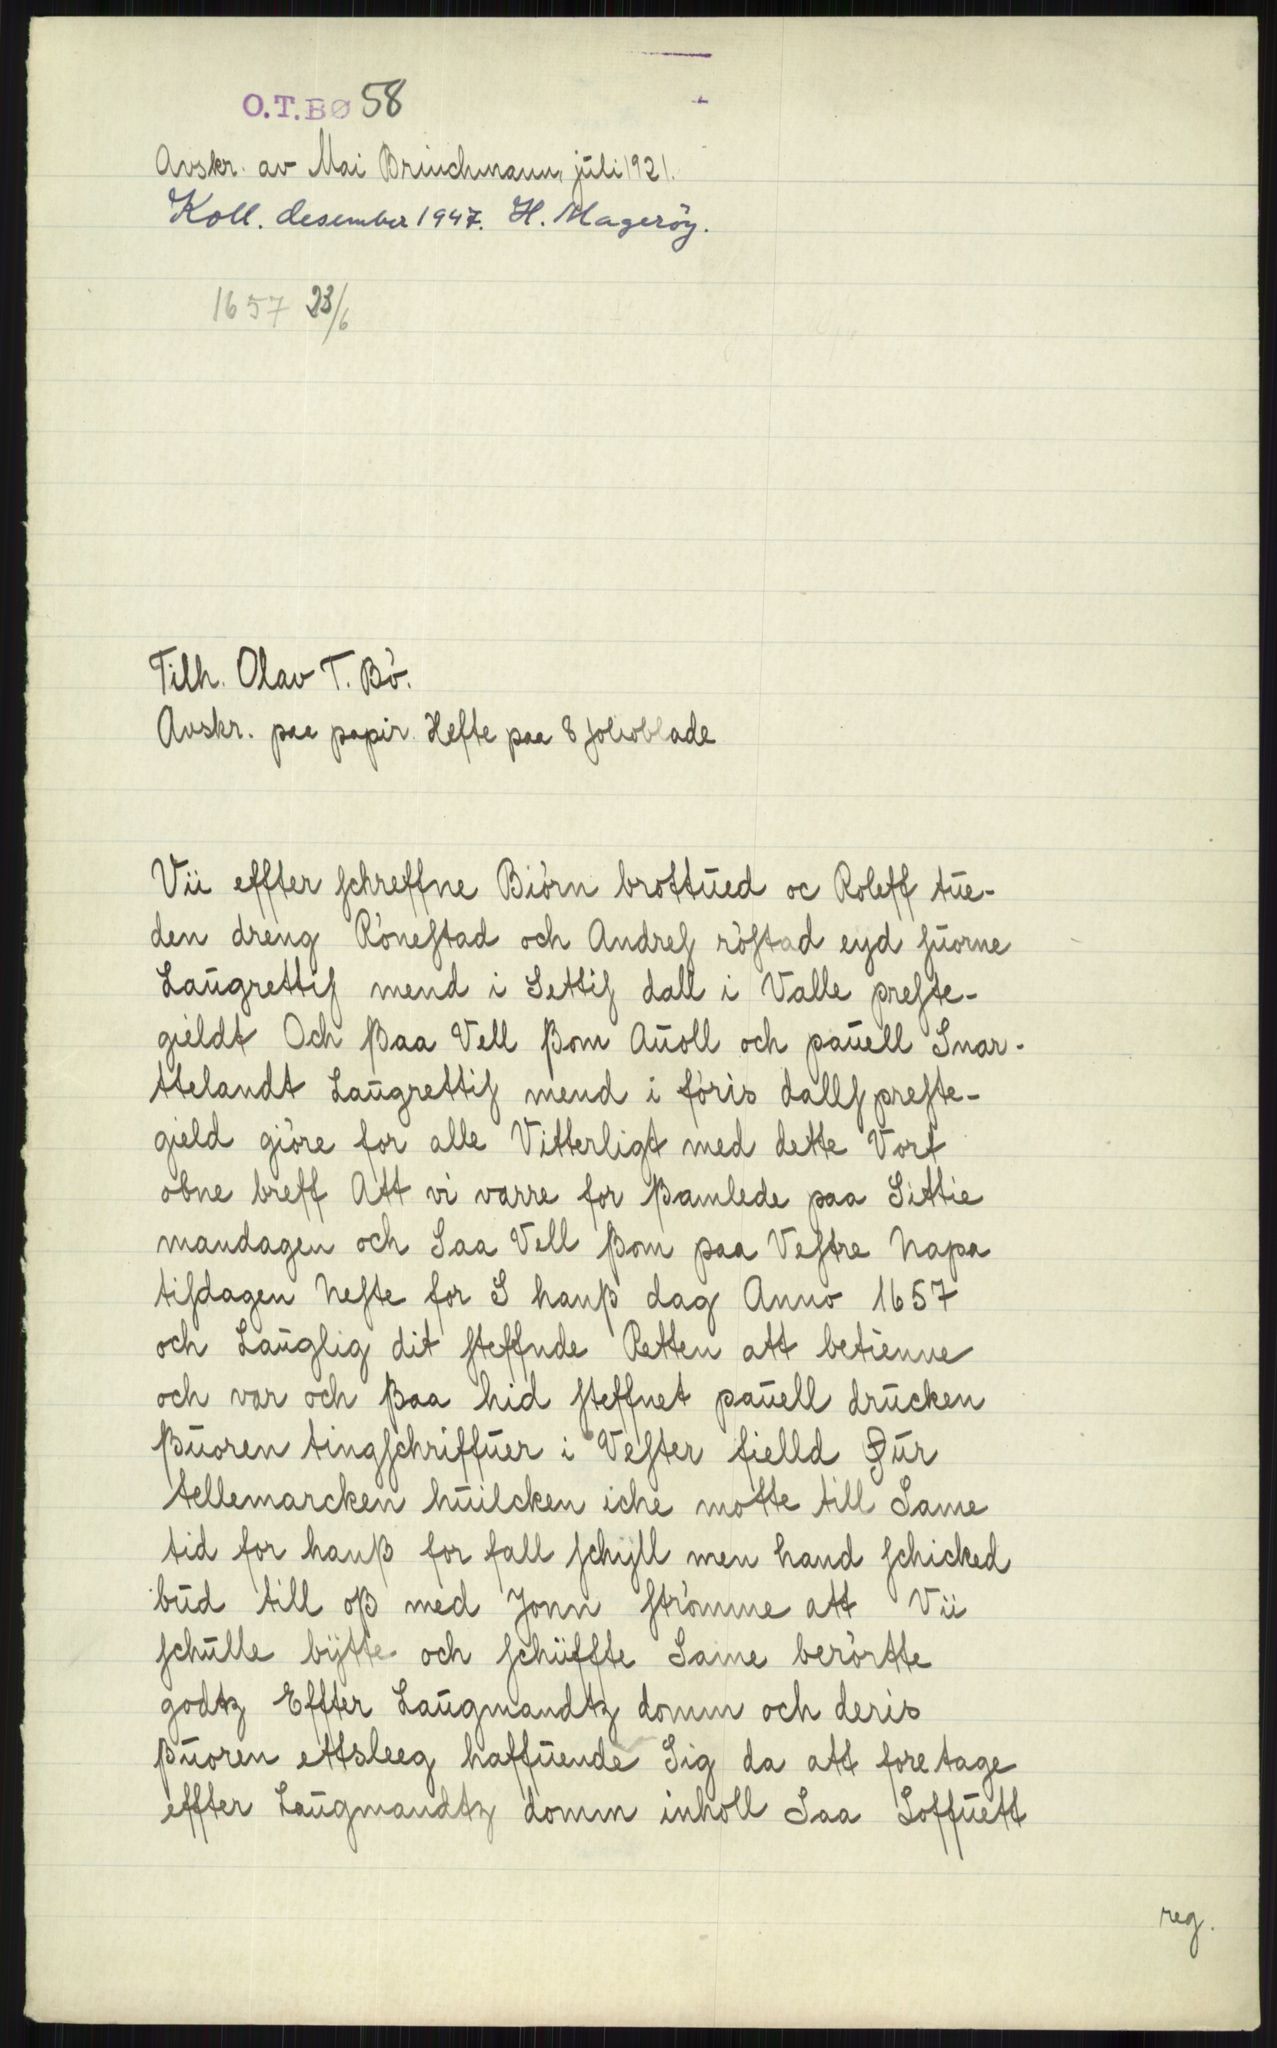 O.T.BØ 58
Avskr. av Mai Brinchmann, juli 1921.
Koll. desember 1947. H. Mageröy.
1657 23/6
Tilh. Olav T. Bö.
Avskr. paa papir. Hefte paa 8 folioblade
Vii effter schreffne Biörn brottŭed oc Roleff tŭe-
den dreng Röneſtad och Andreſ röſtad eyd ſŭorne
Laŭgrettiſ mend i Settiſ dall i Valle preſte-
gieldt Och ẞaa Vell ẞom Aŭoll och paŭell Snar-
ttelandt Laŭgrettiſ mend i föris dallſ preſte-
gield giöre for alle Vitterligt med dette Vort
obne breff Att vi varre for ẞamlede paa Sittie
mandagen och Saa Vell ẞom paa Veſtre Napa
tiſdagen Neſte for S hanß dag Anno 1657
och Laŭglig dit ſteffnde Retten att betienne
och var och ẞaa hid ſteffnet paŭell drŭcken
ẞŭoren tingſchriffŭer i Veſter fielld Øŭr
tellemarcken hŭilcken iche motte till Same
tid for hanß for fall ſchÿll men hand ſchicked
bŭd till oß med Jonn ſtrömme att Vii
ſchŭlle bÿtte och ſchiffte Same berörtte
godtz Effter Laŭgmandtz domm och deris
ẞŭoren ettsleeg haffŭende Sig da att foretage
effter Laŭgmandtz domm inholl Saa Loffŭett
reg.